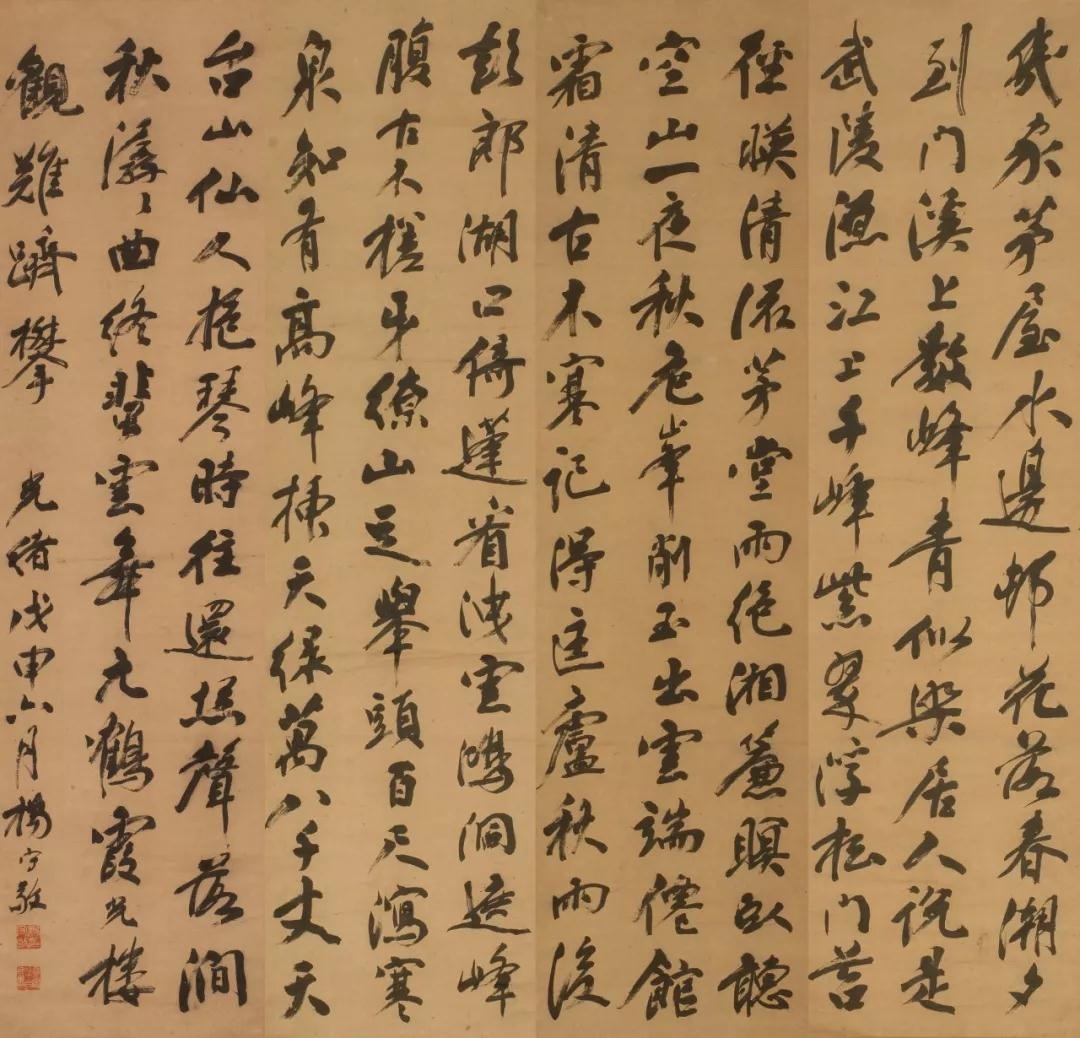 幾家茅屋水邊邨花落春潮夕
到門溪上數峰青似染居人說是
武陵源江上千峰紫翠浮松門苔
徑暎清流茅堂雨絕湘簾暝臥聽
空山一夜秋危峯削玉出雲端僊館
霜清古木寒記得匡廬秋雨後
彭郎湖口倚蓬看洩雲鴻洞遶峰
腹古木槎牙繚山足舉頭百尺瀉寒
泉知有高峰插天綠萬八千丈天
台山仙人抱琴時往還松聲落澗
秋潺々曲終蜚雲舞元鶴霞光樓
觀難躋攀 光緒戊申六月楊守敬